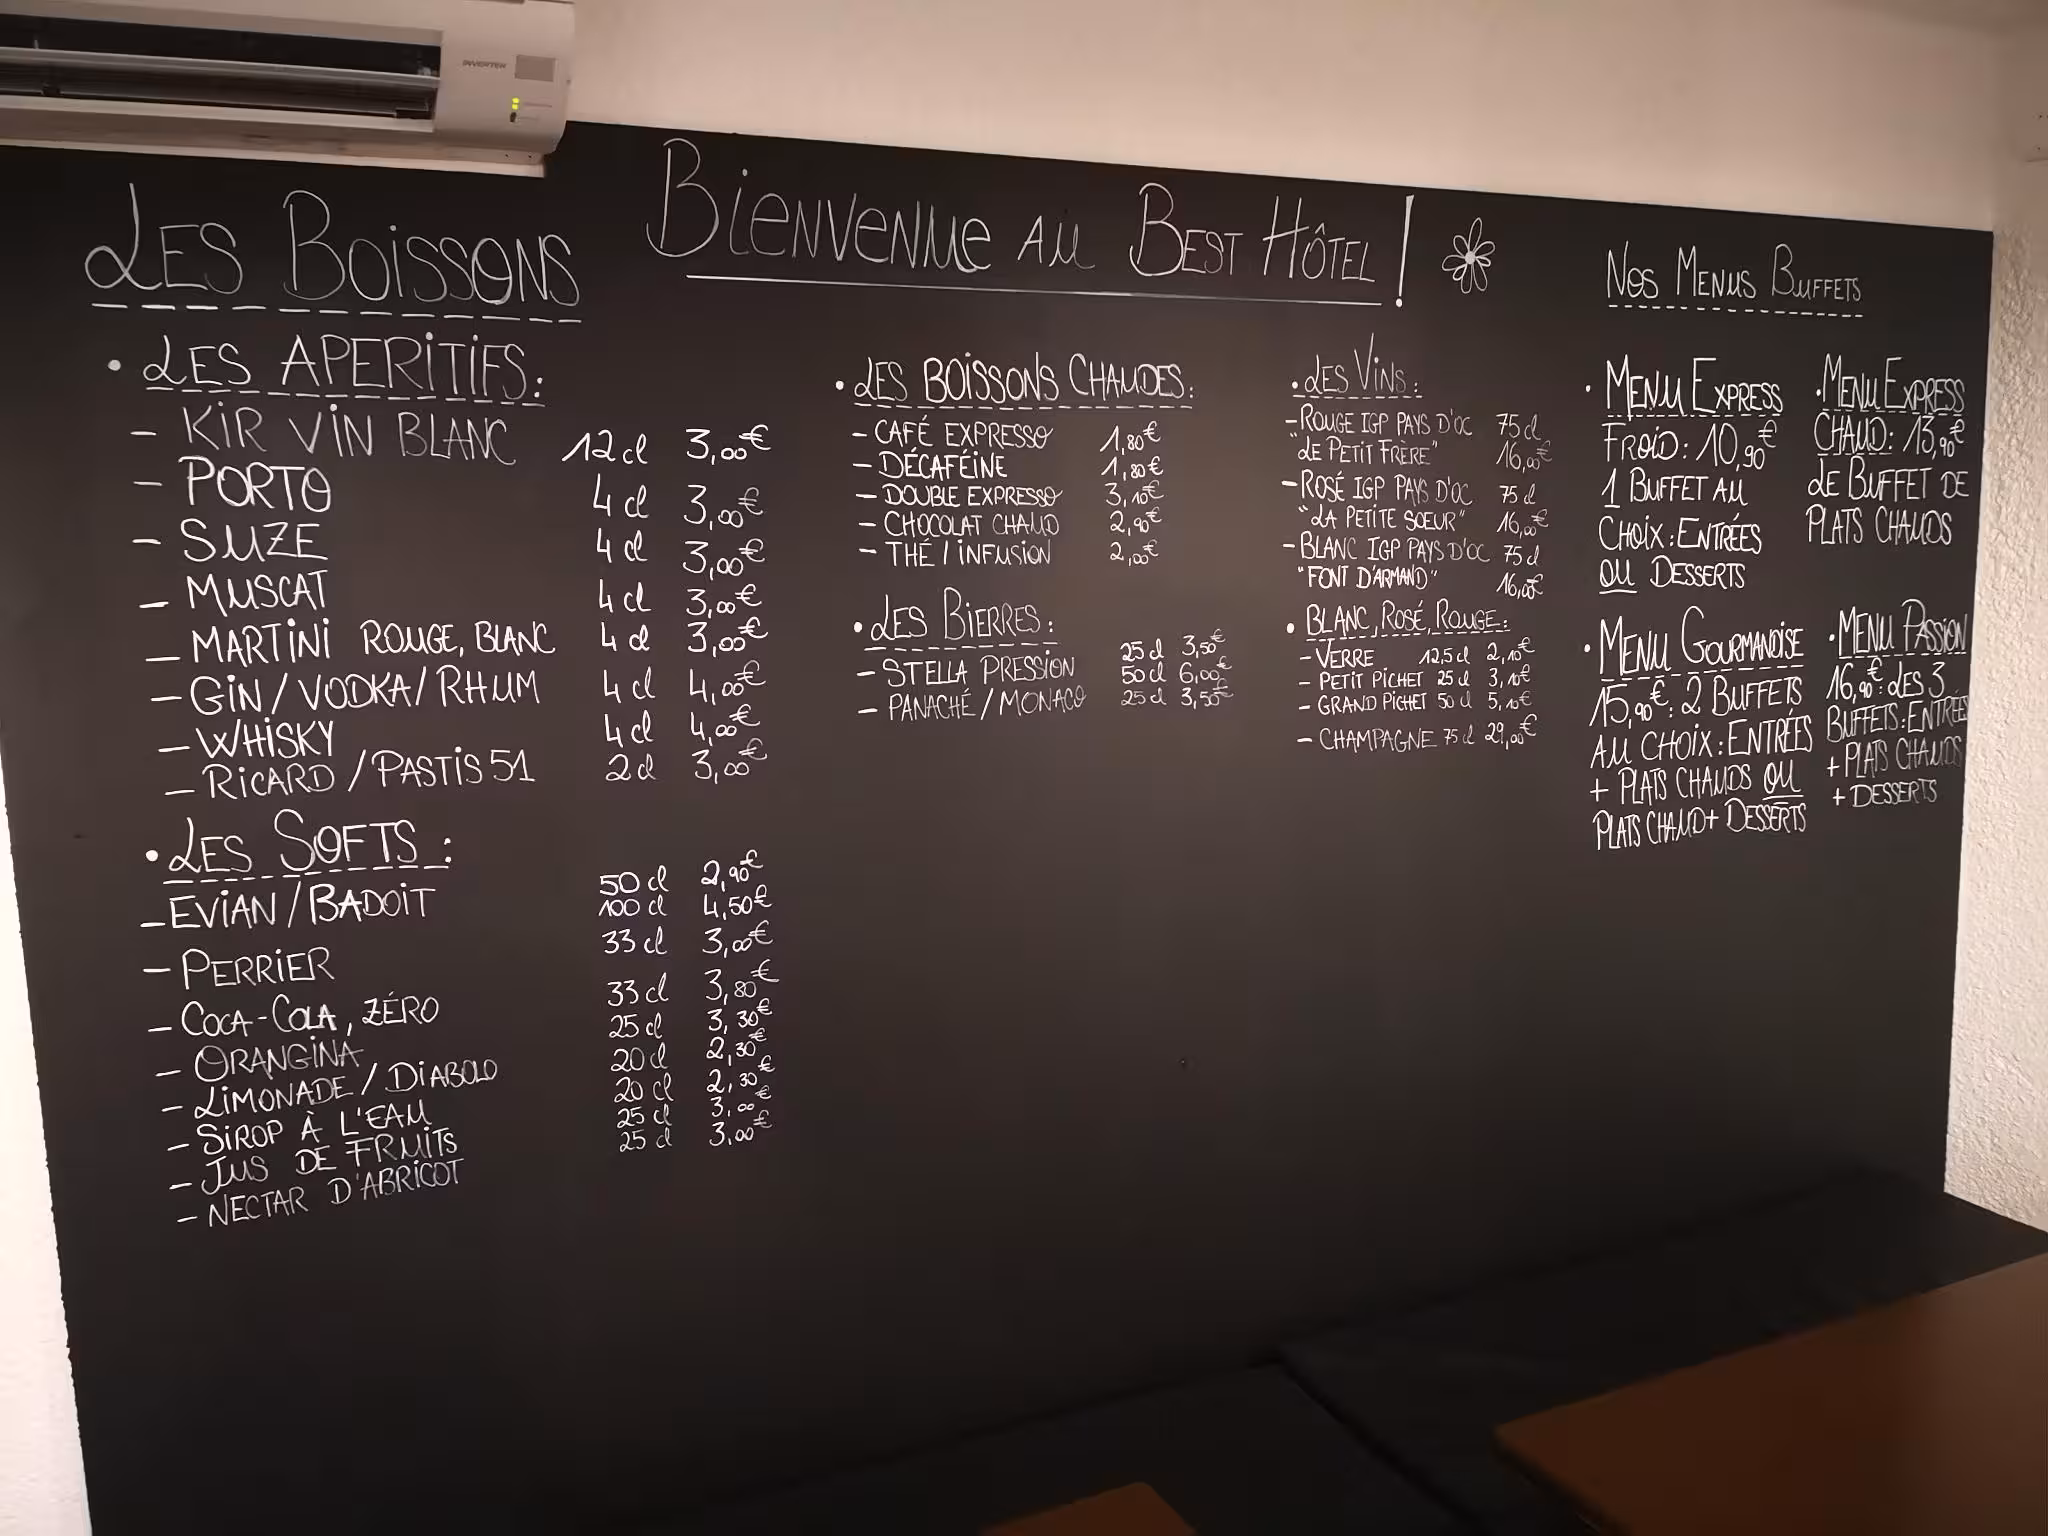 INVERTER
LES BOISSONS
BIENVENUE AU BEST HÔTEL !
NOS MENUS BUFFETS
• LES APERITIFS :
– KIR VIN BLANC 12 cl 3,00€
– PORTO 4 cl 3,00€
– SUZE 4 cl 3,00€
– MUSCAT 4 cl 3,00€
– MARTINI ROUGE, BLANC 4 cl 3,00€
– GIN / VODKA / RHUM 4 cl 4,00€
– WHISKY 4 cl 4,00€
– RICARD / PASTIS 51 2 cl 3,00€
• LES SOFTS :
– EVIAN / BADOIT 50 cl 2,90€
100 cl 4,50€
– PERRIER 33 cl 3,00€
– COCA-COLA, ZÉRO 33 cl 3,80€
– ORANGINA 25 cl 3,30€
– LIMONADE / DIABOLO 20 cl 2,30€
– SIROP À L'EAU 20 cl 2,30€
– JUS DE FRUITS 25 cl 3,00€
– NECTAR D'ABRICOT 25 cl 3,00€
• LES BOISSONS CHAUDES :
– CAFÉ EXPRESSO 1,80€
– DÉCAFÉINE 1,80€
– DOUBLE EXPRESSO 3,10€
– CHOCOLAT CHAUD 2,90€
– THÉ / INFUSION 2,00€
• LES BIERRES :
25 cl 3,50€
– STELLA PRESSION 50 cl 6,00€
– PANACHÉ / MONACO 25 cl 3,50€
• LES VINS :
– ROUGE IGP PAYS D'OC 75 cl
"LE PETIT FRÈRE" 16,00€
– ROSÉ IGP PAYS D'OC 75 cl
"LA PETITE SOEUR" 16,00€
– BLANC IGP PAYS D'OC 75 cl
"FONT D'ARMAND" 16,00€
• BLANC, ROSÉ, ROUGE :
– VERRE 12,5 cl 2,10€
– PETIT PICHET 25 cl 3,10€
– GRAND PICHET 50 cl 5,10€
– CHAMPAGNE 75 cl 29,00€
• MENU EXPRESS
FROID : 10,90€
1 BUFFET AU
CHOIX : ENTRÉES
OU DESSERTS
• MENU EXPRESS
CHAUD : 13,90€
LE BUFFET DE
PLATS CHAUDS
• MENU GOURMANDISE
15,90€ : 2 BUFFETS
AU CHOIX : ENTRÉES
+ PLATS CHAUDS OU
PLATS CHAUD + DESSERTS
• MENU PASSION
16,90€ : LES 3
BUFFETS : ENTRÉES
+ PLATS CHAUDS
+ DESSERTS